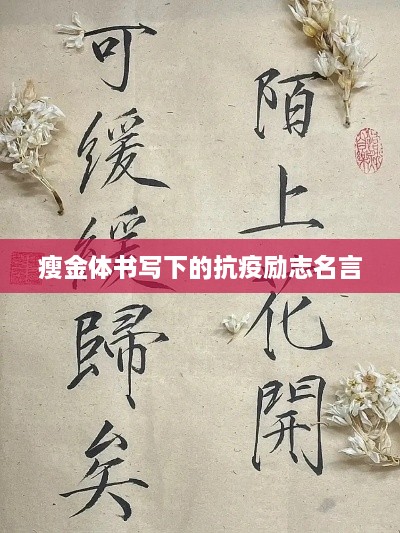 陌上花開
可緩緩歸矣
瘦金体书写下的抗疫励志名言